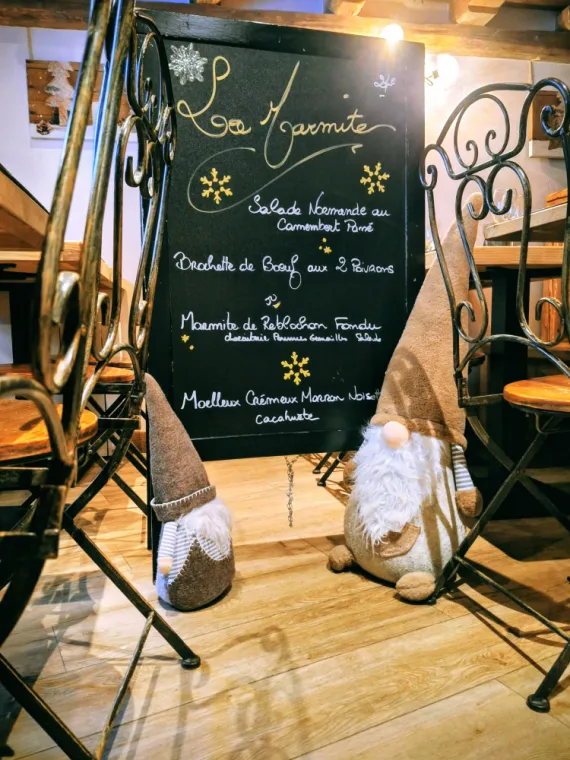 La Marmite
Salade Normande au
Camembert Pané
Brochette de Boeuf aux 2 Poivrons
Marmite de Reblochon Fondu
charcuterie Pommes Grenailles Salade
Moelleux Crémeux Marron
Cacahuète